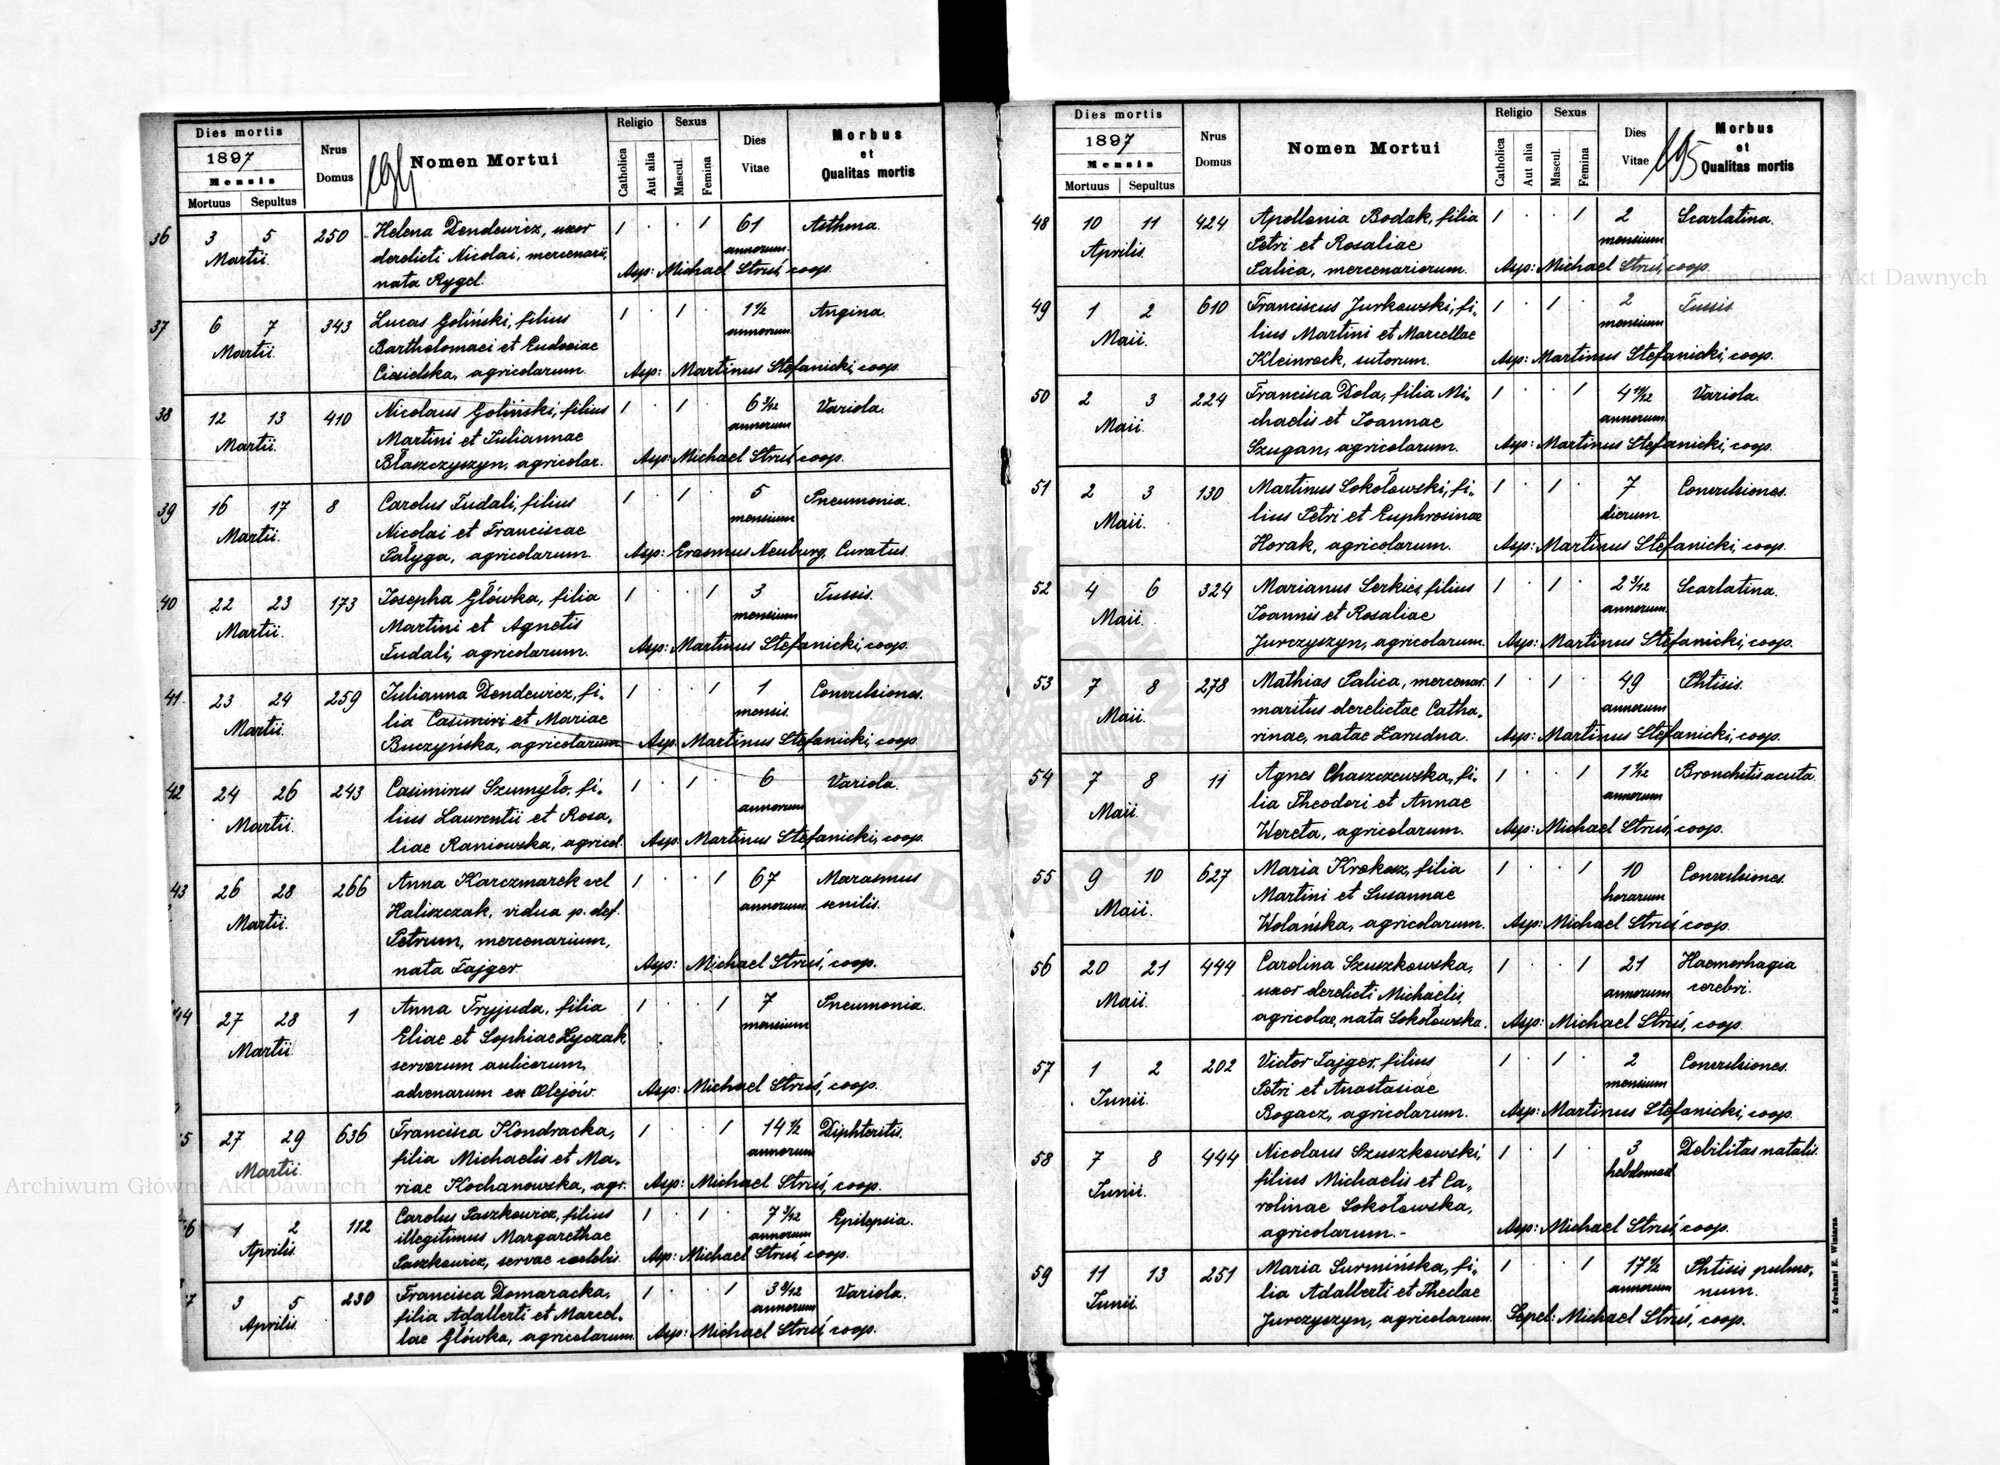 Dies mortis
1897
Mensis
Mortuus Sepultus
Nrus Domus
194
Nomen Mortui
Religio
Catholica
Aut alia
Sexus
Mascul.
Femina
Dies Vitae
Morbus
et
Qualitas mortis
36 3 5 250 Helena Dendewicz, uxor 1 · · 1 61 Asthma.
Martii. derelicti Nicolai, mercenarii, annorum.
nata Rygel. Asp: Michael Struś, coop.
37 6 7 343 Lucas Goliński, filius 1 · 1 · 1 1/2 Angina.
Martii. Bartholomaei et Eudociae annorum
Ciesielska, agricolarum. Asp: Martinus Stefanicki, coop.
38 12 13 410 Nicolaus Goliński, filius 1 · 1 · 6 3/12 Variola.
Martii. Martini et Juliannae annorum
Błaszczyszyn, agricolar. Asp: Michael Struś, coop.
39 16 17 8 Carolus Tudali, filius 1 · 1 · 5 Pneumonia.
Martii. Nicolai et Franciscae mensium
Pałyga, agricolarum. Asp: Erasmus Neuburg, Curatus.
40 22 23 173 Josepha Główka, filia 1 · · 1 3 Tussis.
Martii. Martini et Agnetis mensium
Tudali, agricolarum. Asp: Martinus Stefanicki, coop.
41 23 24 259 Julianna Dendewicz, fi-1 · · 1 1 Convulsiones.
Martii. lia Casimiri et Mariae mensis.
Buczyńska, agricolarum. Asp: Martinus Stefanicki, coop
42 24 26 243 Casimirus Szumyło, fi-1 · 1 · 6 Variola.
Martii. lius Laurentii et Rosa- annorum
liae Raniowska, agricol. Asp: Martinus Stefanicki, coop.
43 26 28 266 Anna Karczmarek vel 1 · · 1 67 Marasmus
Martii. Haliszczak, vidua p. def. annorum. senilis.
Petrum, mercenarium,
nata Tajger. Asp: Michael Struś, coop.
44 27 28 1 Anna Tryjuda, filia 1 · · 1 7 Pneumonia.
Martii. Eliae et Sophiae Łyczak mensium
servorum aulicorum,
advenarum ex Olejów. Asp: Michael Struś, coop.
5 27 29 636 Francisca Kondracka, 1 · · 1 14 1/2 Diphteritis.
Martii. filia Michaelis et Ma- annorum
riae Kochanowska, agr. Asp: Michael Struś, coop.
6 1 2 112 Carolus Paszkowicz, filius 1 · 1 · 7 3/12 Epilepsia.
Aprilis. illegitimus Margarethae annorum
Paszkowicz, servae coelebis. Asp: Michael Struś, coop.
7 3 5 230 Francisca Domaracka, 1 · · 1 Variola.
Aprilis. filia Adalberti et Marcel- annorum
lae Główka, agricolarum. Asp: Michael Struś, coop.
Dies mortis
1897
Mensis
Mortuus Sepultus
Nrus Domus
Nomen Mortui
Religio
Catholica
Aut alia
Sexus
Mascul.
Femina
Dies Vitae
195
Morbus
et
Qualitas mortis
48 10 11 424 Apollonia Bodak, filia 1 · · 1 2 Scarlatina.
Aprilis. Petri et Rosaliae mensium
Palica, mercenariorum. Asp: Michael Struś, coop.
49 1 2 610 Franciscus Jurkowski, fi-1 · 1 · 2 Tussis.
Maii. lius Martini et Marcellae mensium
Kleinrock, sutorum. Asp: Martinus Stefanicki, coop.
50 2 3 224 Francisca Dola, filia Mi-1 · · 1 Variola.
Maii. chaelis et Joannae annorum
Szugan, agricolarum. Asp: Martinus Stefanicki, coop.
51 2 3 130 Martinus Sokołowski, fi-1 · 1 · 7 Convulsiones.
Maii. lius Petri et Euphrosinae dierum.
Horak, agricolarum. Asp: Martinus Stefanicki, coop.
52 4 6 324 Marianus Serkies, filius 1 · 1 · 2 3/12 Scarlatina.
Maii. Joannis et Rosaliae annorum.
Jurczyszyn, agricolarum. Asp: Martinus Stefanicki, coop.
53 7 8 278 Mathias Palica, mercenar. 1 · 1 · 49 Phtisis.
Maii. maritus derelictae Catha- annorum
rinae, natae Zarudna. Asp: Martinus Stefanicki, coop.
54 7 8 11 Agnes Chaszczewska, fi-1 · · 1 Bronchitis acuta.
Maii. lia Theodori et Annae annorum
Wereta, agricolarum. Asp: Michael Struś, coop.
55 9 10 627 Maria Krokosz, filia 1 · · 1 10 Convulsiones.
Maii. Martini et Susannae horarum
Wolańska, agricolarum. Asp: Michael Struś, coop.
56 20 21 444 Carolina Szuszkowska, 1 · · 1 21 Haemorhagia
Maii. uxor derelicti Michaelis, annorum cerebri.
agricolae, nata Sokołowska. Asp: Michael Struś, coop.
57 1 2 202 Victor Tajger, filius 1 · 1 · 2 Convulsiones.
Junii. Petri et Anastasiae mensium
Bogacz, agricolarum. Asp: Martinus Stefanicki, coop.
58 7 8 444 Nicolaus Szuszkowski, 1 · 1 · 3 Debilitas natalis.
Junii. filius Michaelis et Ca- hebdomad.
rolinae Sokołowska,
agricolarum.- Asp: Michael Struś, coop.
59 11 13 251 Maria Surmińska, fi-1 · · 1 17 1/2 Phtisis pulmo-
Junii. lia Adalberti et Theclae annorum num.
Jurczyszyn, agricolarum. Sepel: Michael Struś, coop.
Z drukarni E. Winiarza
Archiwum Główne Akt Dawnych
Archiwum Główne Akt Dawnych
ARCHIWUM GŁÓWNE AKT DAWNYCH